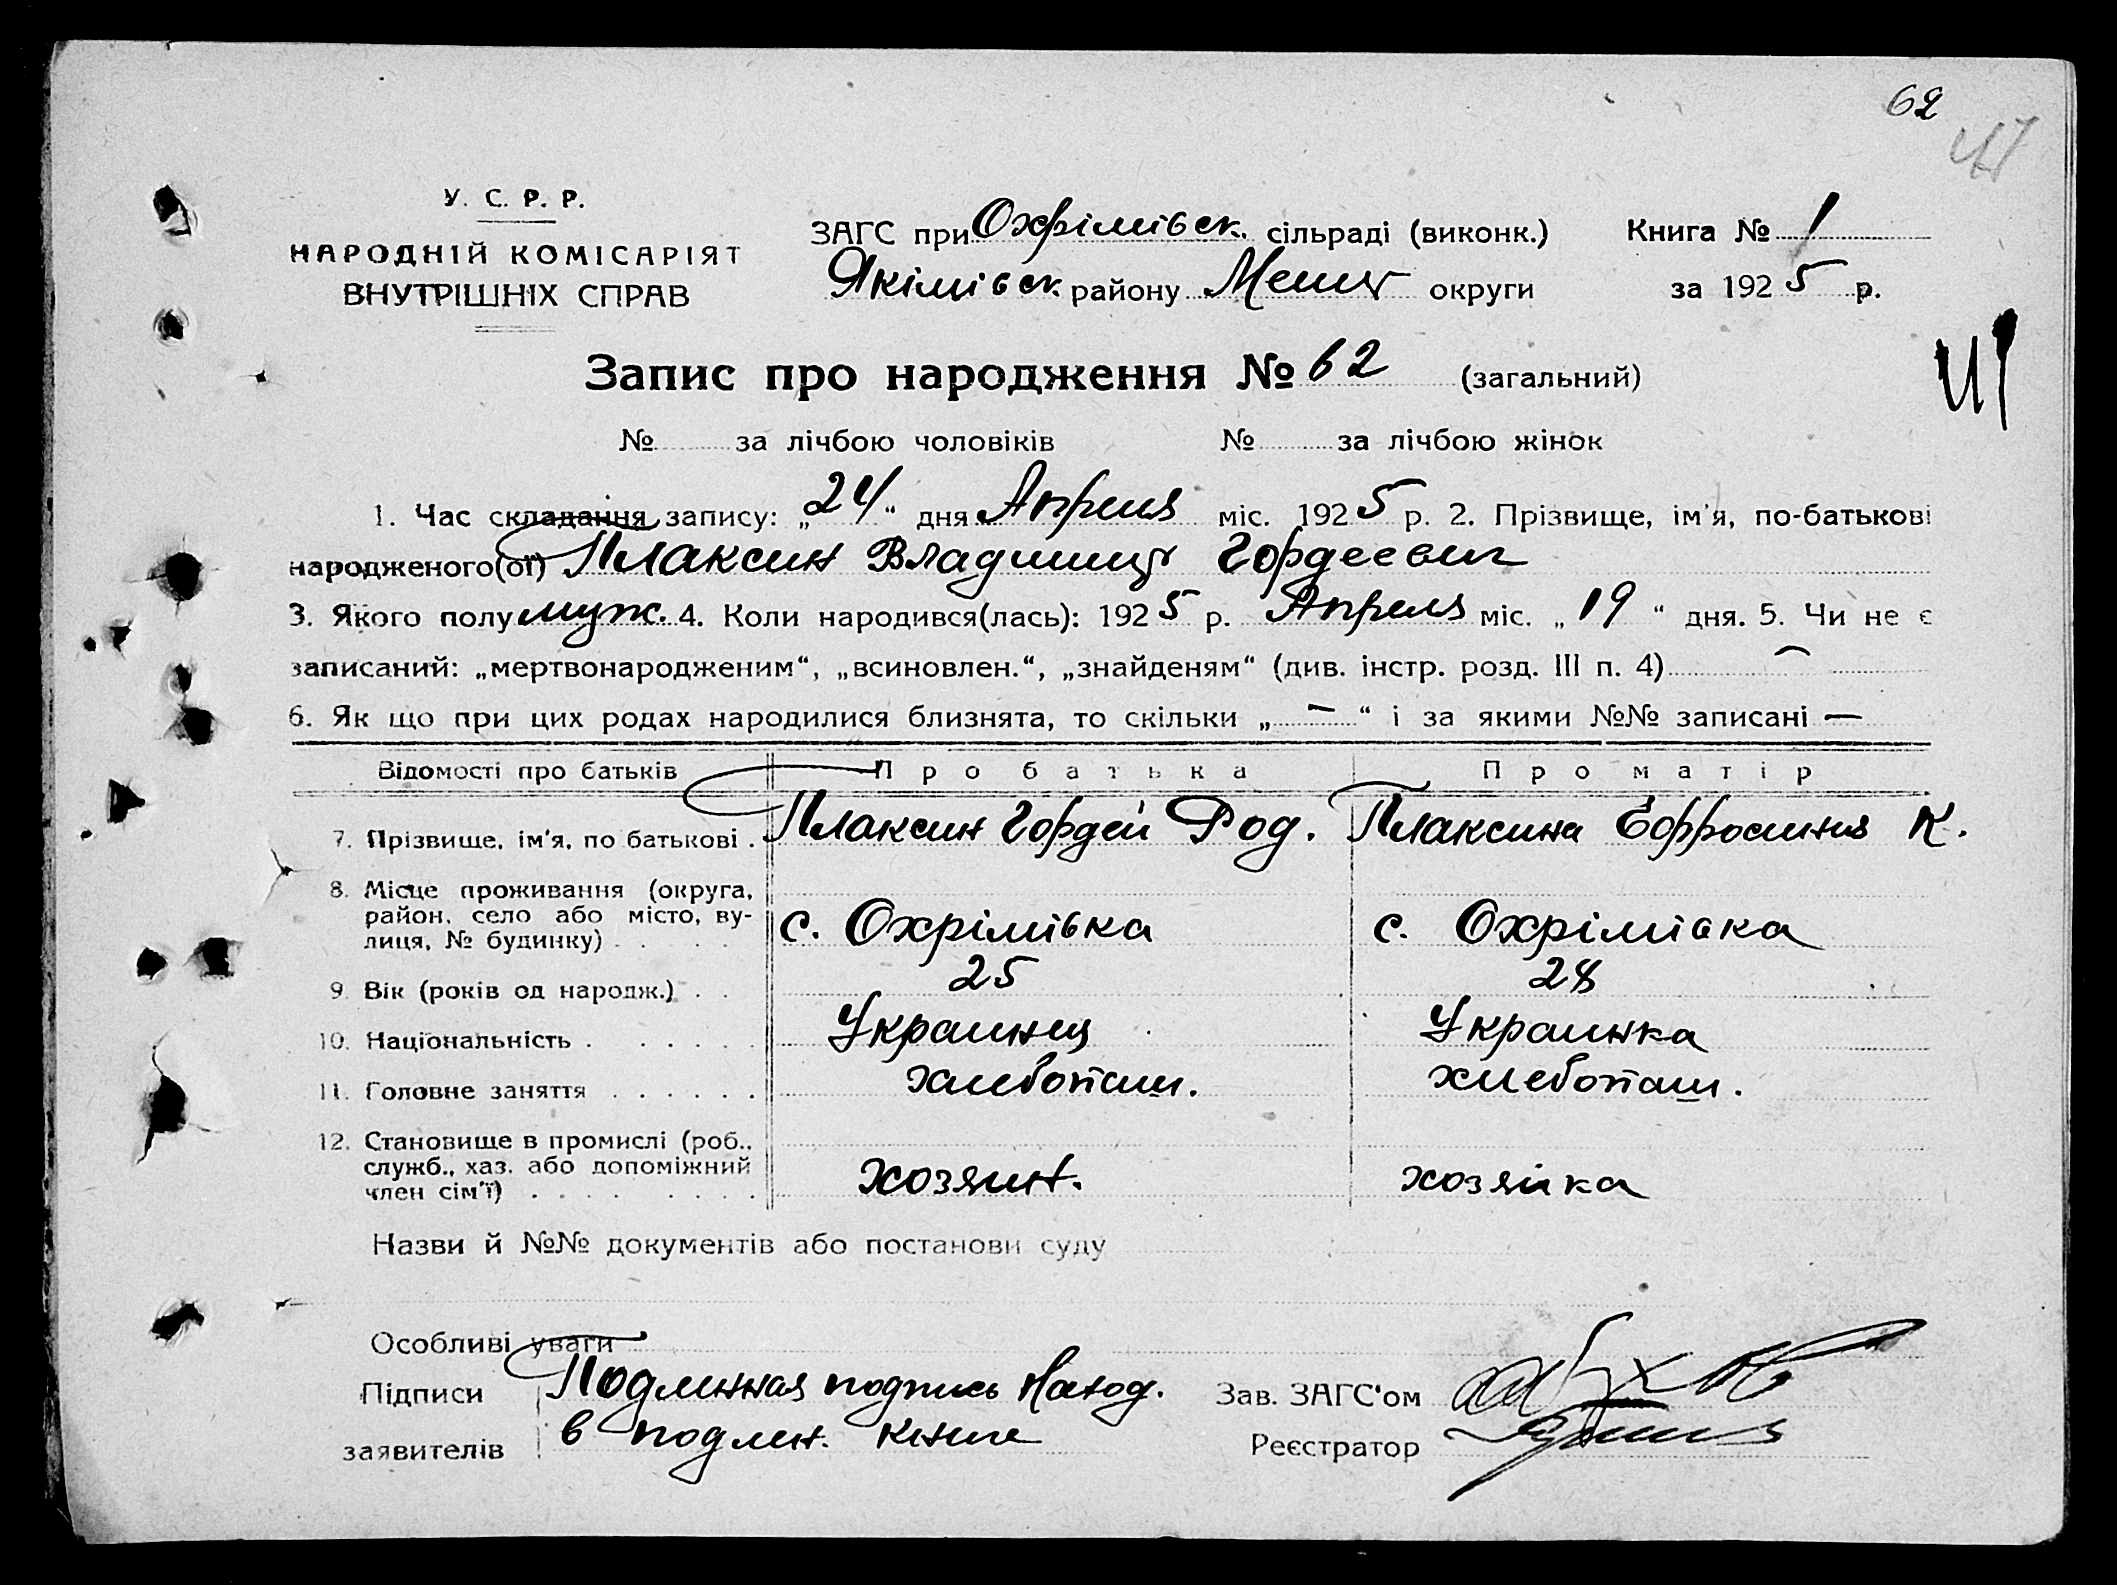 62
У. С. Р. Р.
НАРОДНІЙ КОМІСАРІЯТ
ВНУТРІШНІХ СПРАВ
ЗАГС при Охрімівск. сільраді (виконк.) Книга № 1
Якімівск району Мелит округи за 1925 р.
Запис про народження № 62 (загальний)
№ за лічбою чоловіків № за лічбою жінок
1. Час складання запису: „24“ дня Апреля міс. 1925 р. 2. Прізвище, ім'я, по-батькові
народженого(ої) Плаксин Владимир Гордеевич
3. Якого полу муж. 4. Коли народився(лась): 1925 р. Апреля міс. „19“ дня. 5. Чи не є
записаний: „мертвонародженим“, „всиновлен.“, „знайденям“ (див. інстр. розд. III п. 4) —
6. Як що при цих родах народилися близнята, то скільки „—“ і за якими №№ записані —
Відомості про батьків Про батька Про матір
7. Прізвище, ім'я, по батькові . Плаксин Гордей Род. Плаксина Ефросиния К.
8. Місце проживання (округа,
район, село або місто, ву-
лиця, № будинку) . . . . с. Охрімівка с. Охрімівка
9. Вік (років од народж.) . . 25 28
10. Національність . . . . . . Украинец Украинка
11. Головне заняття . . . . . . хлебопаш. хлебопаш.
12. Становище в промислі (роб.,
служб., хаз. або допоміжний
член сім'ї) . . . . . . . . хозяин. хозяйка
Назви й №№ документів або постанови суду
Особливі уваги
Підписи Подлинная подпись наход. Зав. ЗАГС'ом
заявителів в подлин. книге Реєстратор